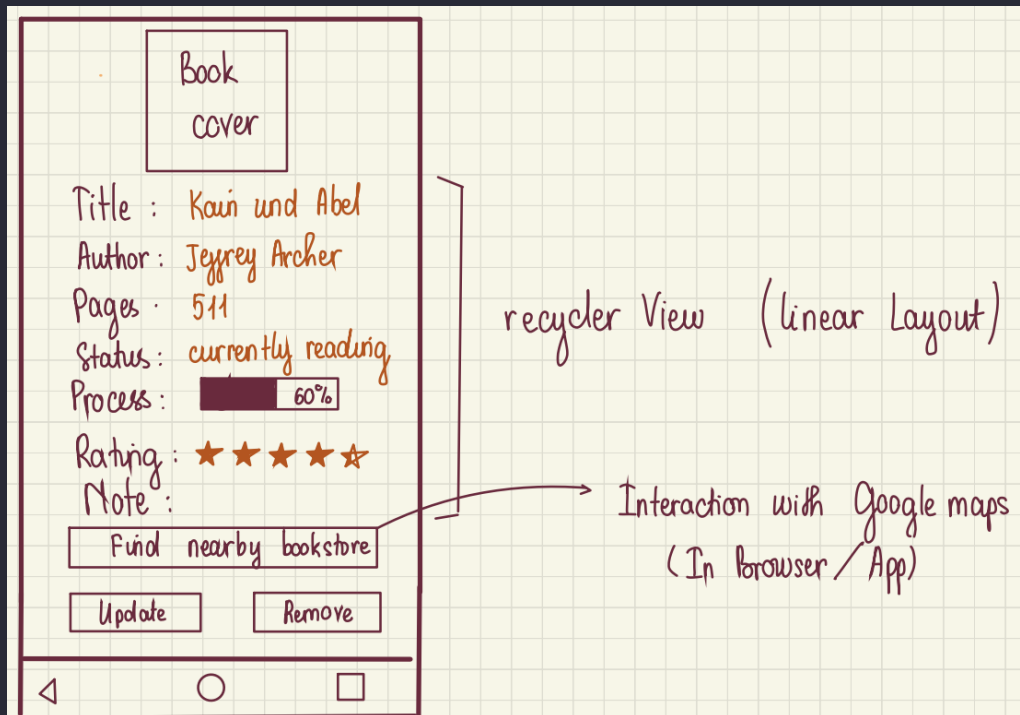 Book
cover
Title : Kain und Abel
Author : Jeffrey Archer
Pages : 511
Status : currently reading
Process : 60%
Rating :
Note :
Find nearby bookstore
Update
Remove
recycler View (linear Layout)
Interaction with Google maps
(In Browser / App)